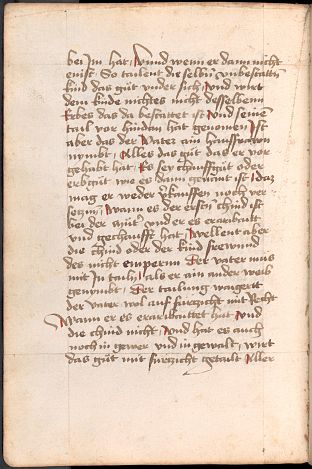 bei Im hat / Wund wenn er dann nicht
enist / So tailent die selbñ vnbestattñ
kind das gůt vnder sich / Vnd wirt
dem kinde nichtes nicht desselbenn
Erbes das da bestattet ist Vnd seinē
tail vor hindan hat genomen Ist
aber das der Vater ain haussfrawen
nymbt / Alles das gůt das er vor
gehabt hat / Es sey chauffgůt oder
erbgůt wie es dann genant ist / daz
mag er weder v'kauffen noch ver
setzñ / Wann es der ersten chind ist
bei der můt' vnd er es erarbaitt
vnd gechaufft hat / Wellent aber
die chind oder der kind frewnnd
des nicht empernn Der vater mus
mit In tailñ / als er ain ander weib
genymbt / Der tailung waigertt
der vater wol auf fürzicht mit Recht
Wann er es erarbaittet hat / Vnd
die chind nicht / Vnd hat es auch
noch in gewer vnd in gewalt / wirt
das gůt mit fürzicht getailt Aller